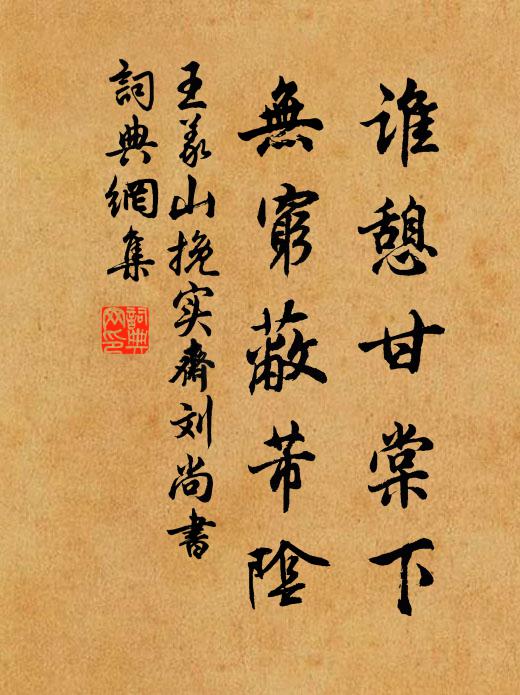 誰憩甘棠下
無窮蔽芾陰
王义山挽实斋刘尚書
詞典網集
詞典
网印